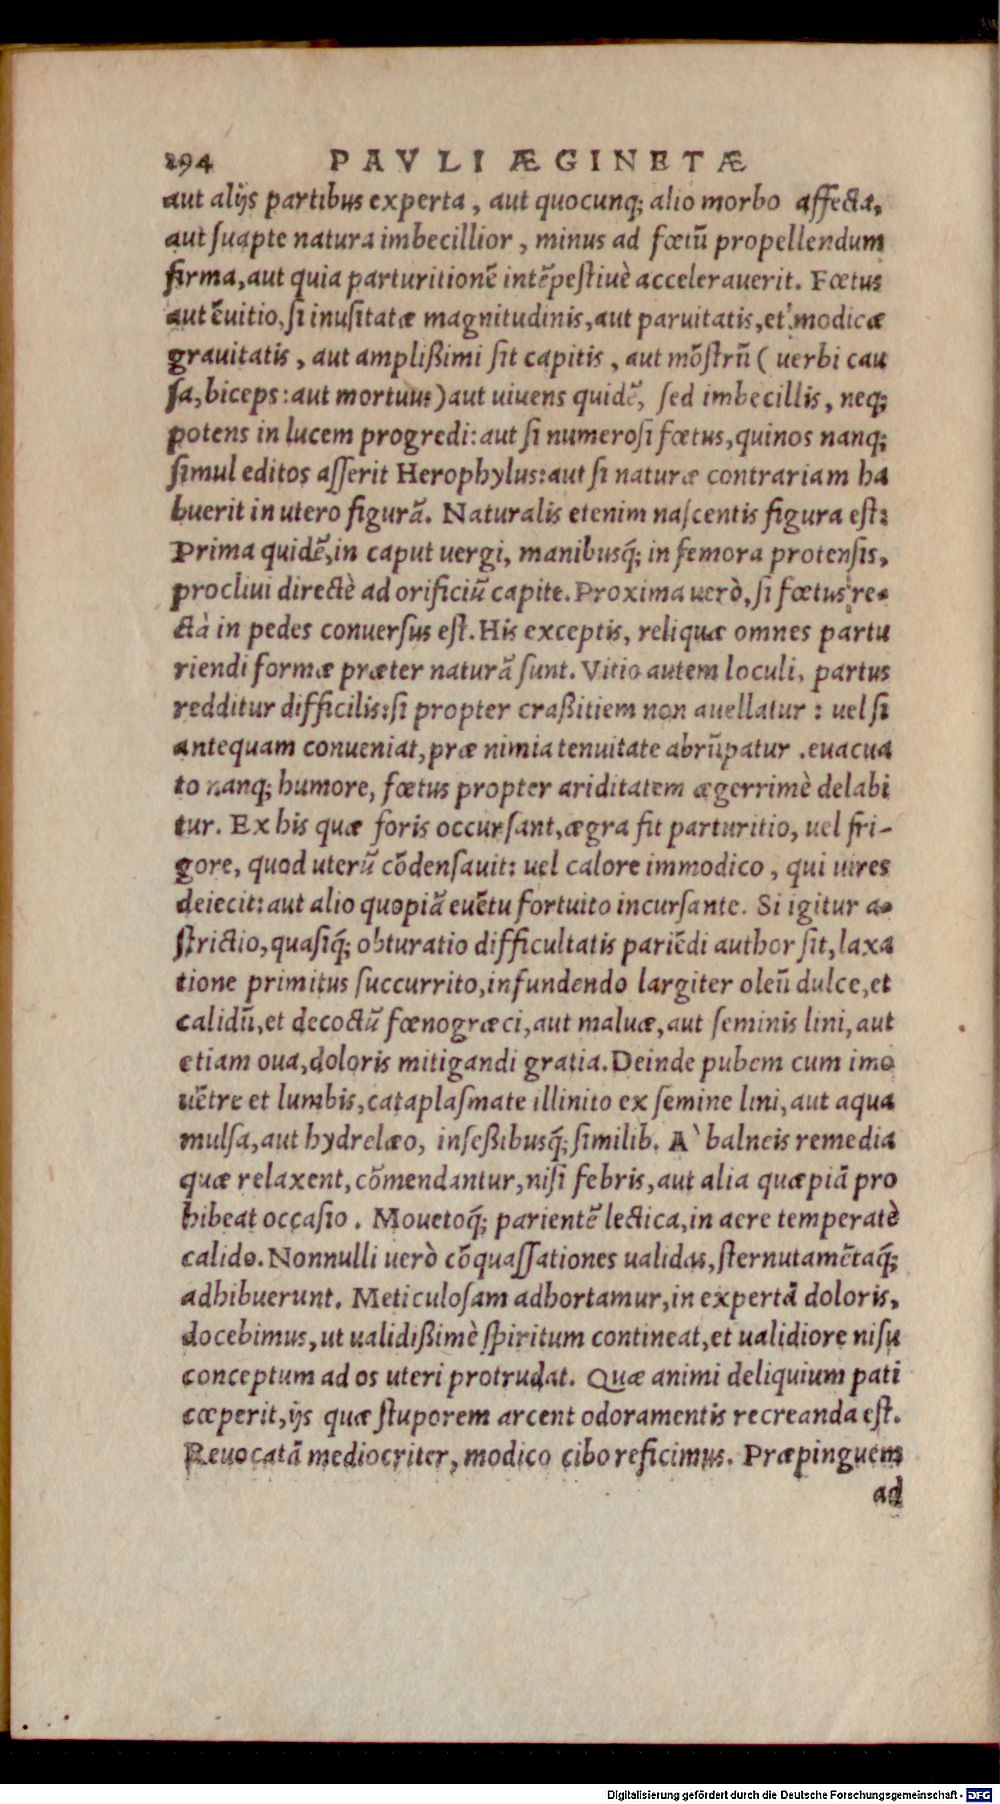 294 PAVLI ÆGINETÆ
aut alijs partibus experta, aut quocunq; alio morbo affecta,
aut ſuapte natura imbecillior, minus ad fœtũ propellendum
firma, aut quia parturitionẽ intẽpeſtiuè accelerauerit. Fœtus
aut ẽ uitio, ſi inuſitatæ magnitudinis, aut paruitatis, et modicæ
grauitatis, aut amplißimi ſit capitis, aut mõſtrũ ( uerbi cau
ſa, biceps: aut mortuus) aut uiuens quidẽ, ſed imbecillis, neq;
potens in lucem progredi: aut ſi numeroſi fœtus, quinos nanq;
ſimul editos aſſerit Herophylus: aut ſi naturæ contrariam ha
buerit in utero figurã. Naturalis etenim naſcentis figura eſt:
Prima quidẽ, in caput uergi, manibusq́; in femora protenſis,
procliui directè ad orificiũ capite. Proxima uerò, ſi fœtus re-
ctà in pedes conuerſus eſt. His exceptis, reliquæ omnes partu
riendi formæ præter naturã ſunt. Vitio autem loculi, partus
redditur difficilis: ſi propter craßitiem non auellatur : uel ſi
antequam conueniat, præ nimia tenuitate abrũpatur . euacua
to nanq; humore, fœtus propter ariditatem ægerrimè delabi
tur. Ex his quæ foris occurſant, ægra fit parturitio, uel fri-
gore, quod uterũ cõdenſauit: uel calore immodico, qui uires
deiecit: aut alio quopiã euẽtu fortuito incurſante. Si igitur a-
ſtrictio, quaſiq́; obturatio difficultatis pariẽdi author ſit, laxa
tione primitus ſuccurrito, infundendo largiter oleũ dulce, et
calidũ, et decoctũ fœnogræci, aut maluæ, aut ſeminis lini, aut
etiam oua, doloris mitigandi gratia. Deinde pubem cum imo
uẽtre et lumbis, cataplaſmate illinito ex ſemine lini, aut aqua
mulſa, aut hydrelæo, inſeßibusq́; ſimilib. A` balneis remedia
quæ relaxent, cõmendantur, niſi febris, aut alia quæpiã pro
hibeat occaſio. Mouetoq́; parientẽ lectica, in aere temperatè
calido. Nonnulli uerò cõquaſſationes ualidas, ſternutamẽtaq́;
adhibuerunt. Meticuloſam adhortamur, in expertã doloris,
docebimus, ut ualidißimè ſpiritum contineat, et ualidiore niſu
conceptum ad os uteri protrudat. Quæ animi deliquium pati
cœperit, ijs quæ ſtuporem arcent odoramentis recreanda eſt.
Reuocatã mediocriter, modico cibo reficimus. Præpinguem
ad
Digitalisierung gefördert durch die Deutsche Forschungsgemeinschaft - DFG